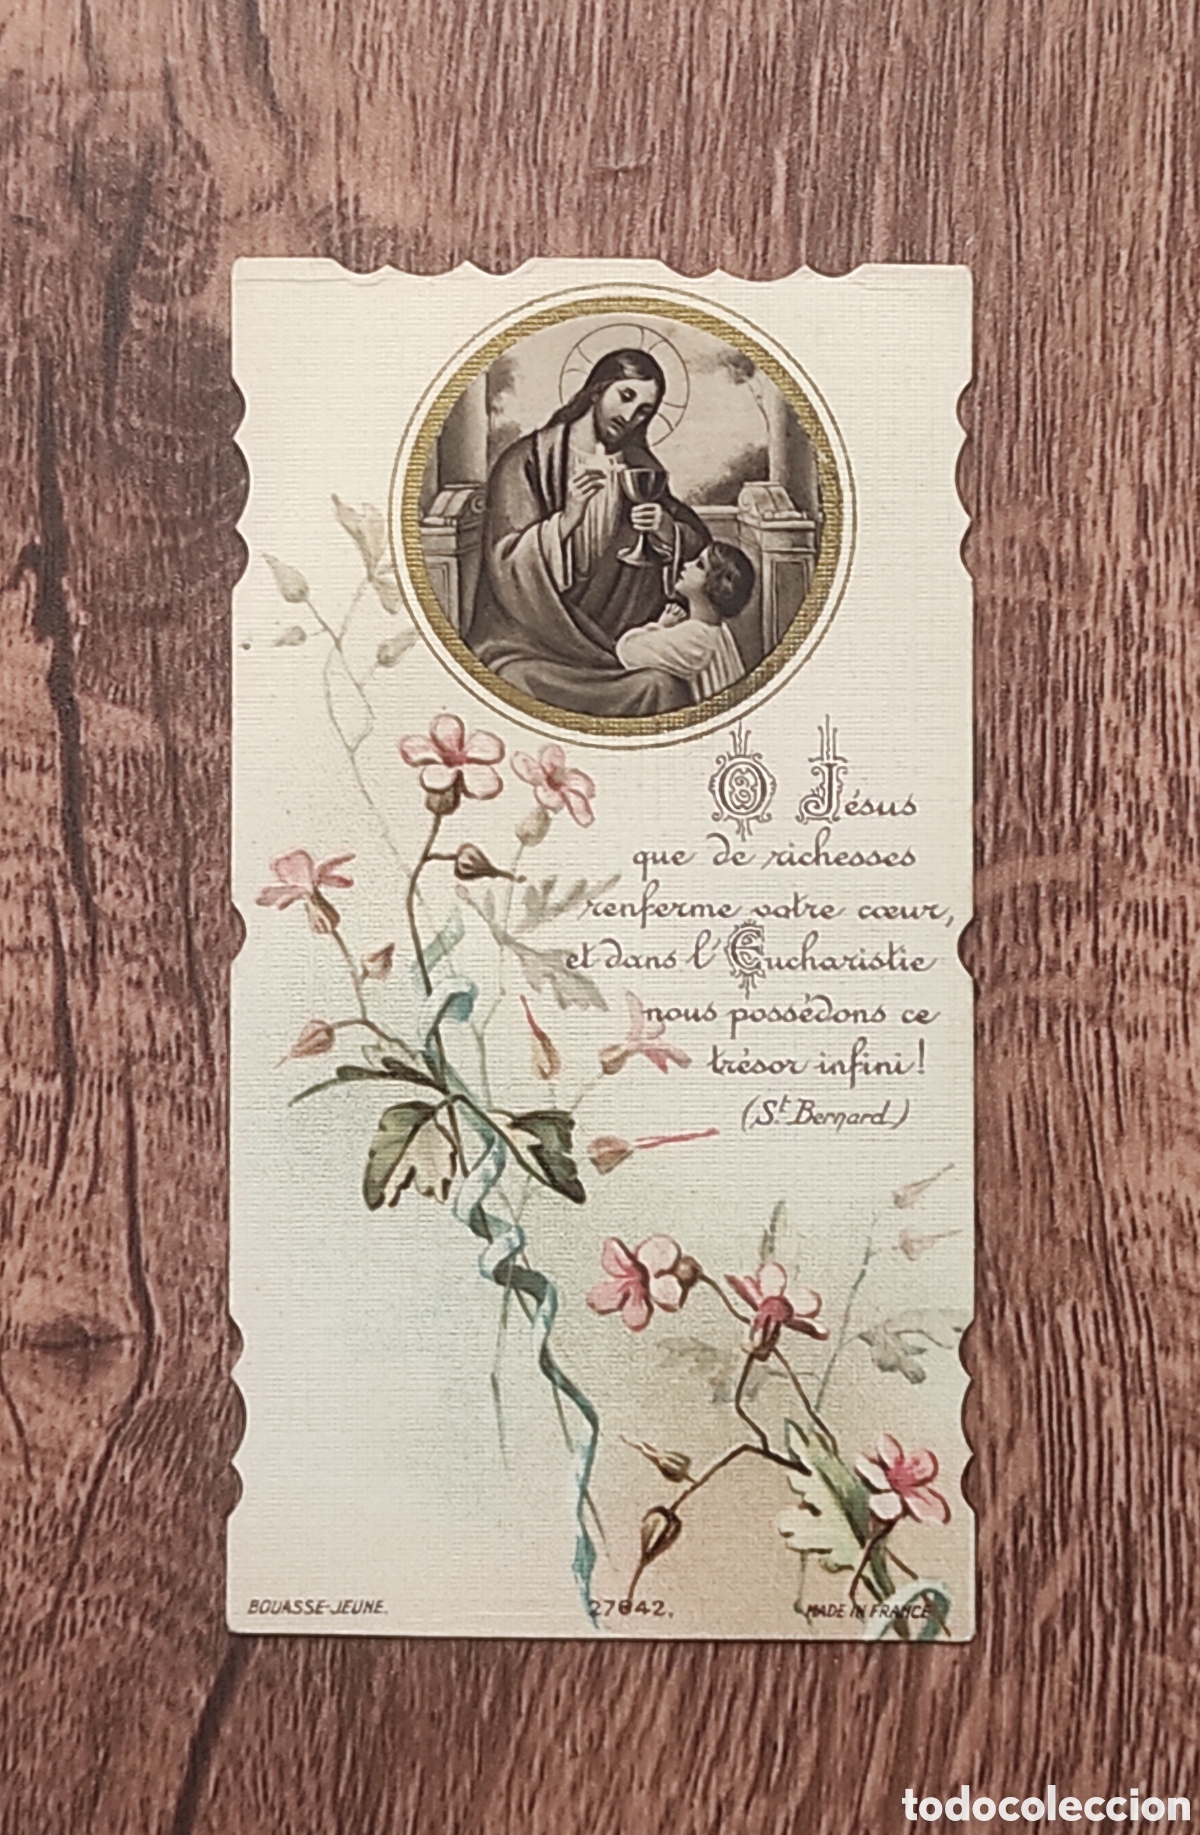 O Jésus
que de richesses
renferme votre cœur,
et dans l'Eucharistie
nous possédons ce
trésor infini!
(St. Bernard)
BOUASSE-JEUNE. 27842. MADE IN FRANCE
todocoleccion